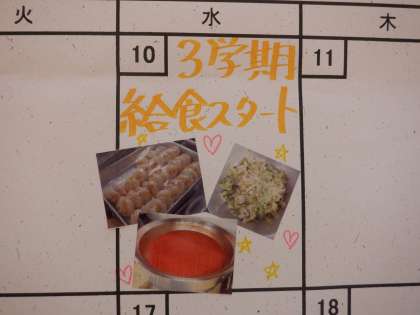 火 水 木
10 3学期 11
給食スタート
17 18